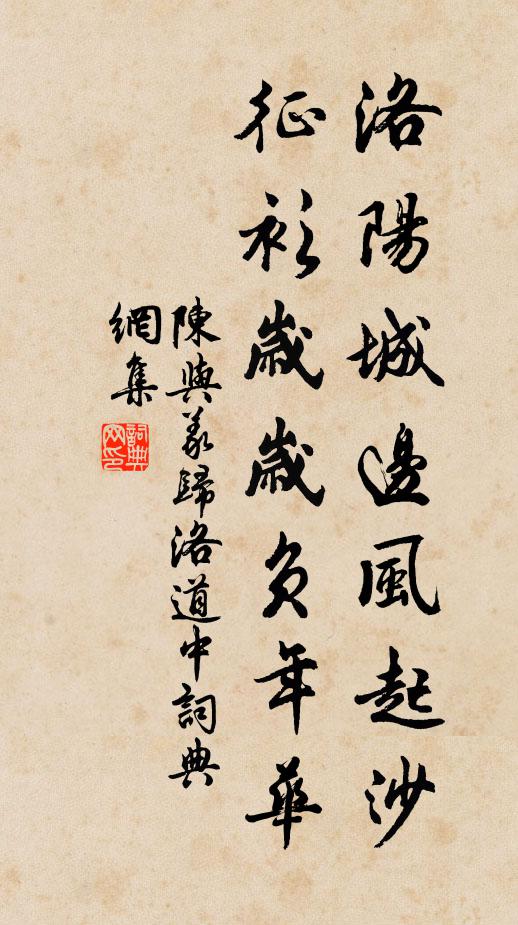 洛陽城邊風起沙
征衫歲歲負年華
陳與義歸洛道中詞典
網集
詞典
网印